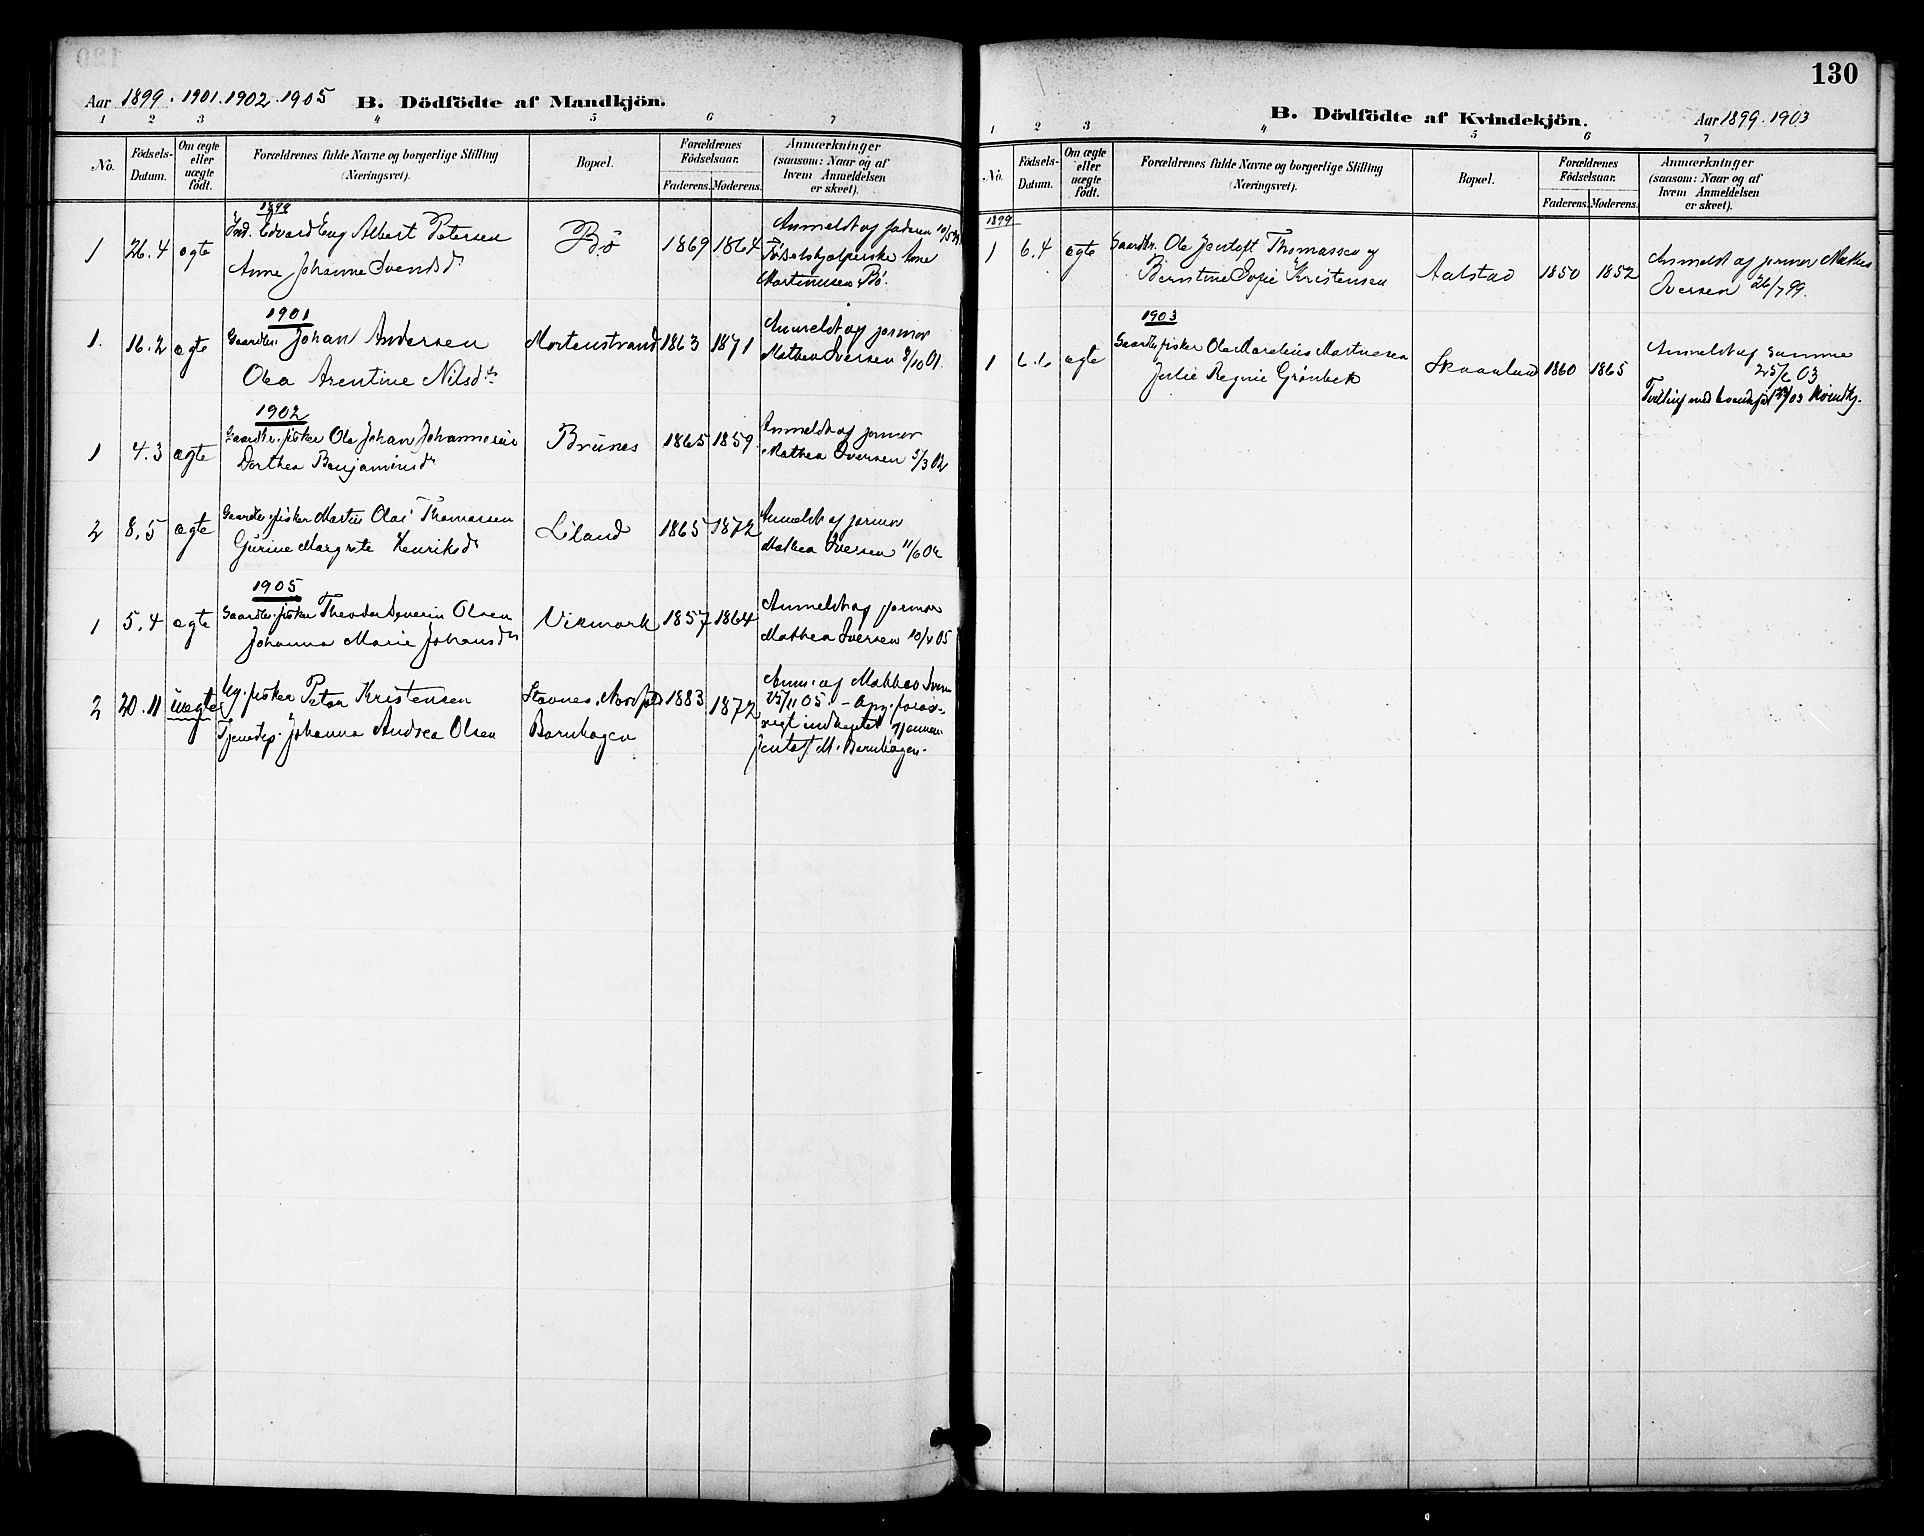 Aar 1899. 1901. 1902. 1905 B. Dödfödte af Mandkjön.
1 2 3 4 5 6 7
No. Födsels-Datum. Om ægte eller uægte födt. Forældrenes fulde Navne og borgerlige Stilling (Næringsvei). Bopæl. Forældrenes Födselsaar. Faderens. Moderens. Anmærkninger (saasom: Naar og af hvem Anmeldelsen er skeet).
1899
1 26.4 ægte Ind. Edvard Eng Albert Petersen Bö 1869 1864 Anmeldt af faderen
Anne Johanne Svendsd Födselshjælperske Ane
Martinusen Bö.
1901
1. 16.2 ægte Gaardbr. Johan Andersen Mortenstrand 1863 1871 Anmeldt af jormor
Olea Arentine Nilsdtr Mathea Iversen 9/10 01.
1902
1 4.3 ægte Gaardbr. fisker Ole Johan Johannesen Brunes 1865 1859. Anmeldt af jormor
Dorthea Benjaminsd Mathea Iversen 5/3 02
2 8.5 ægte Gaardbr. fisker Martin Olai Thomassen Liland 1865 1872 Anmeldt af jormor
Gurine Margrete Henriksd Mathea Iversen 11/6 02
1905
1 5.4 ægte Gaardbr. fisker Theodor Severin Olsen Vikmark 1857 1864 Anmeldt af jormor
Johanna Marie Johansdr Mathea Iversen 10/4 05
2 20.11 uægte Ug. fisker Peter Kristensen Stavnes, 1883 1872 Anm. af Mathea Ivers
Tjenestep. Johanna Andrea Olsen Barnhagen 25/11 05. - Opg.
indhentet gjennem
Jentof M. Barnhagen.
130
B. Dödfödte af Kvindekjön. Aar 1899. 1903
1 2 3 4 5 6 7
No. Födsels-Datum. Om ægte eller uægte födt. Forældrenes fulde Navne og borgerlige Stilling (Næringsvei). Bopæl. Forældrenes Födselsaar. Faderens. Moderens. Anmærkninger (saasom: Naar og af hvem Anmeldelsen er skeet).
1899
1 6.4 ægte Gaardbr. Ole Jentoft Thomassen og Aalstad 1850 1852 Anmeldt af jormor Mathea
Berntine Sofie Kristensen Iversen 26/7 99.
1903
1 6.6 ægte Gaardbr. fisker Ole Marelius Martinesen Skaanland 1860 1865 Anmeldt af samme
Julie Regine Grönbek 25/6 03
Tvilling med